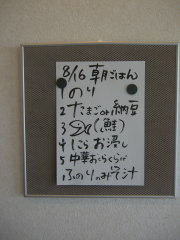 8/16 朝ごはん
1 のり
2 たまごor納豆
3 (鮭)
4 にらお浸し
5 中華おくらくらげ
ふのりのみそ汁